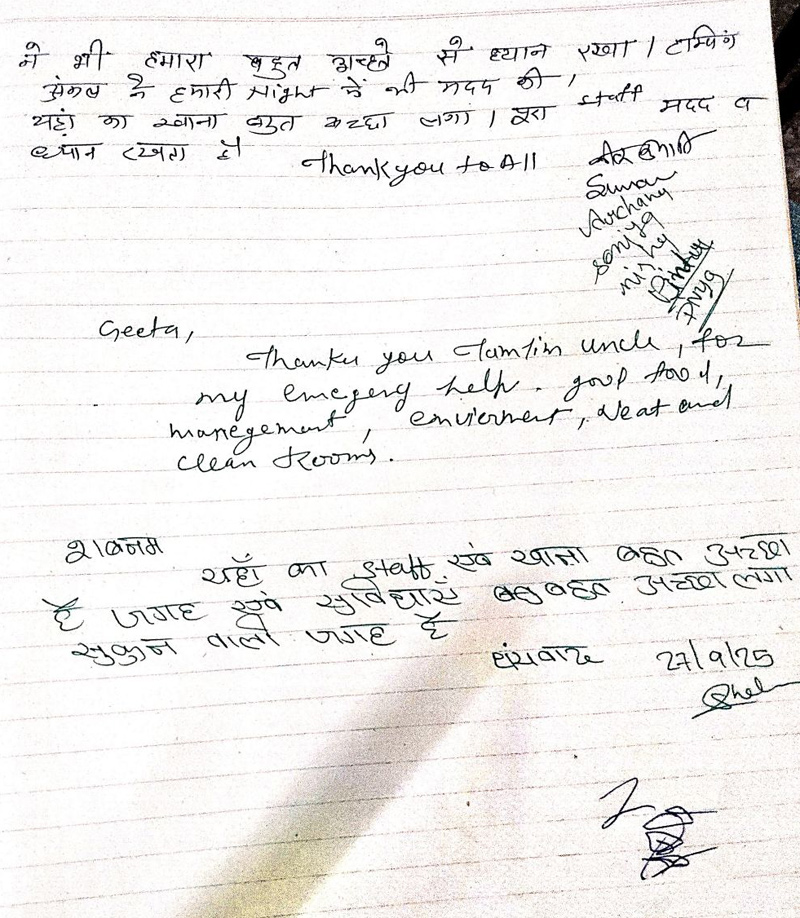 ने भी हमारा बहुत अच्छे से ध्यान रखा। टाम्पिंग
अंकल ने हमारी Night में भी मदद की।
यहां का खाना बहुत अच्छा लगा। पूरा staff मदद व
ध्यान रखता है।
Thank you to All
Suman
Archana
Soniya
nisha
Pinky
Divya
Geeta,
Thanku you Tamtim uncle, for
my emegery help. good food,
manegement, enviermert, Neat and
clean Rooms.
शबनम
यहाँ का staff एवं खाना बहुत अच्छा
है जगह एवं सुविधाएं बहुत अच्छा लगा
सुकुन वाली जगह है
धंयवाद 27/9/25